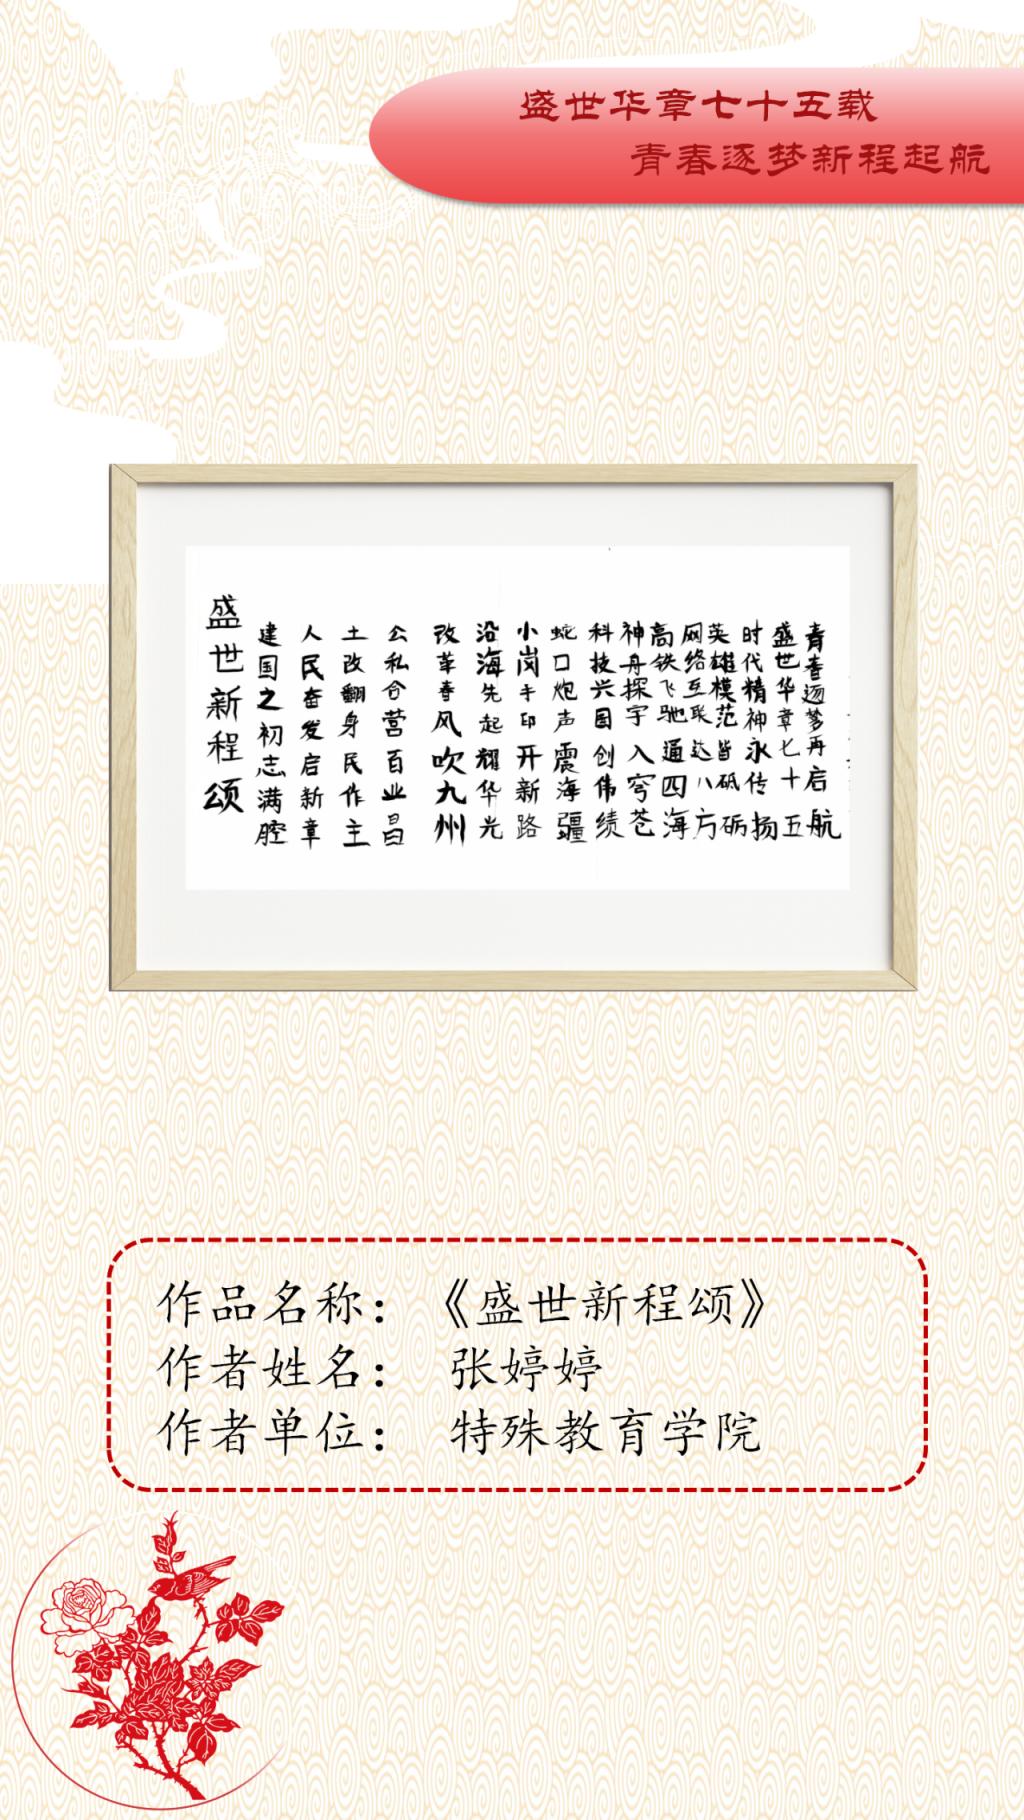 盛世华章七十五载
青春逐梦新程起航
盛世新程颂
建国之初志满腔
人民奋发启新章
土改翻身民作主
公私合营百业昌
改革春风吹九州
沿海先起耀华光
小岗手印开新路
蛇口炮声震海疆
科技兴国创伟绩
神舟探宇入穹苍
高铁飞驰通四海
网络互联达八方
英雄模范皆砥砺
时代精神永传扬
盛世华章七十五
青春逐梦再启航
作品名称：《盛世新程颂》
作者姓名： 张婷婷
作者单位： 特殊教育学院